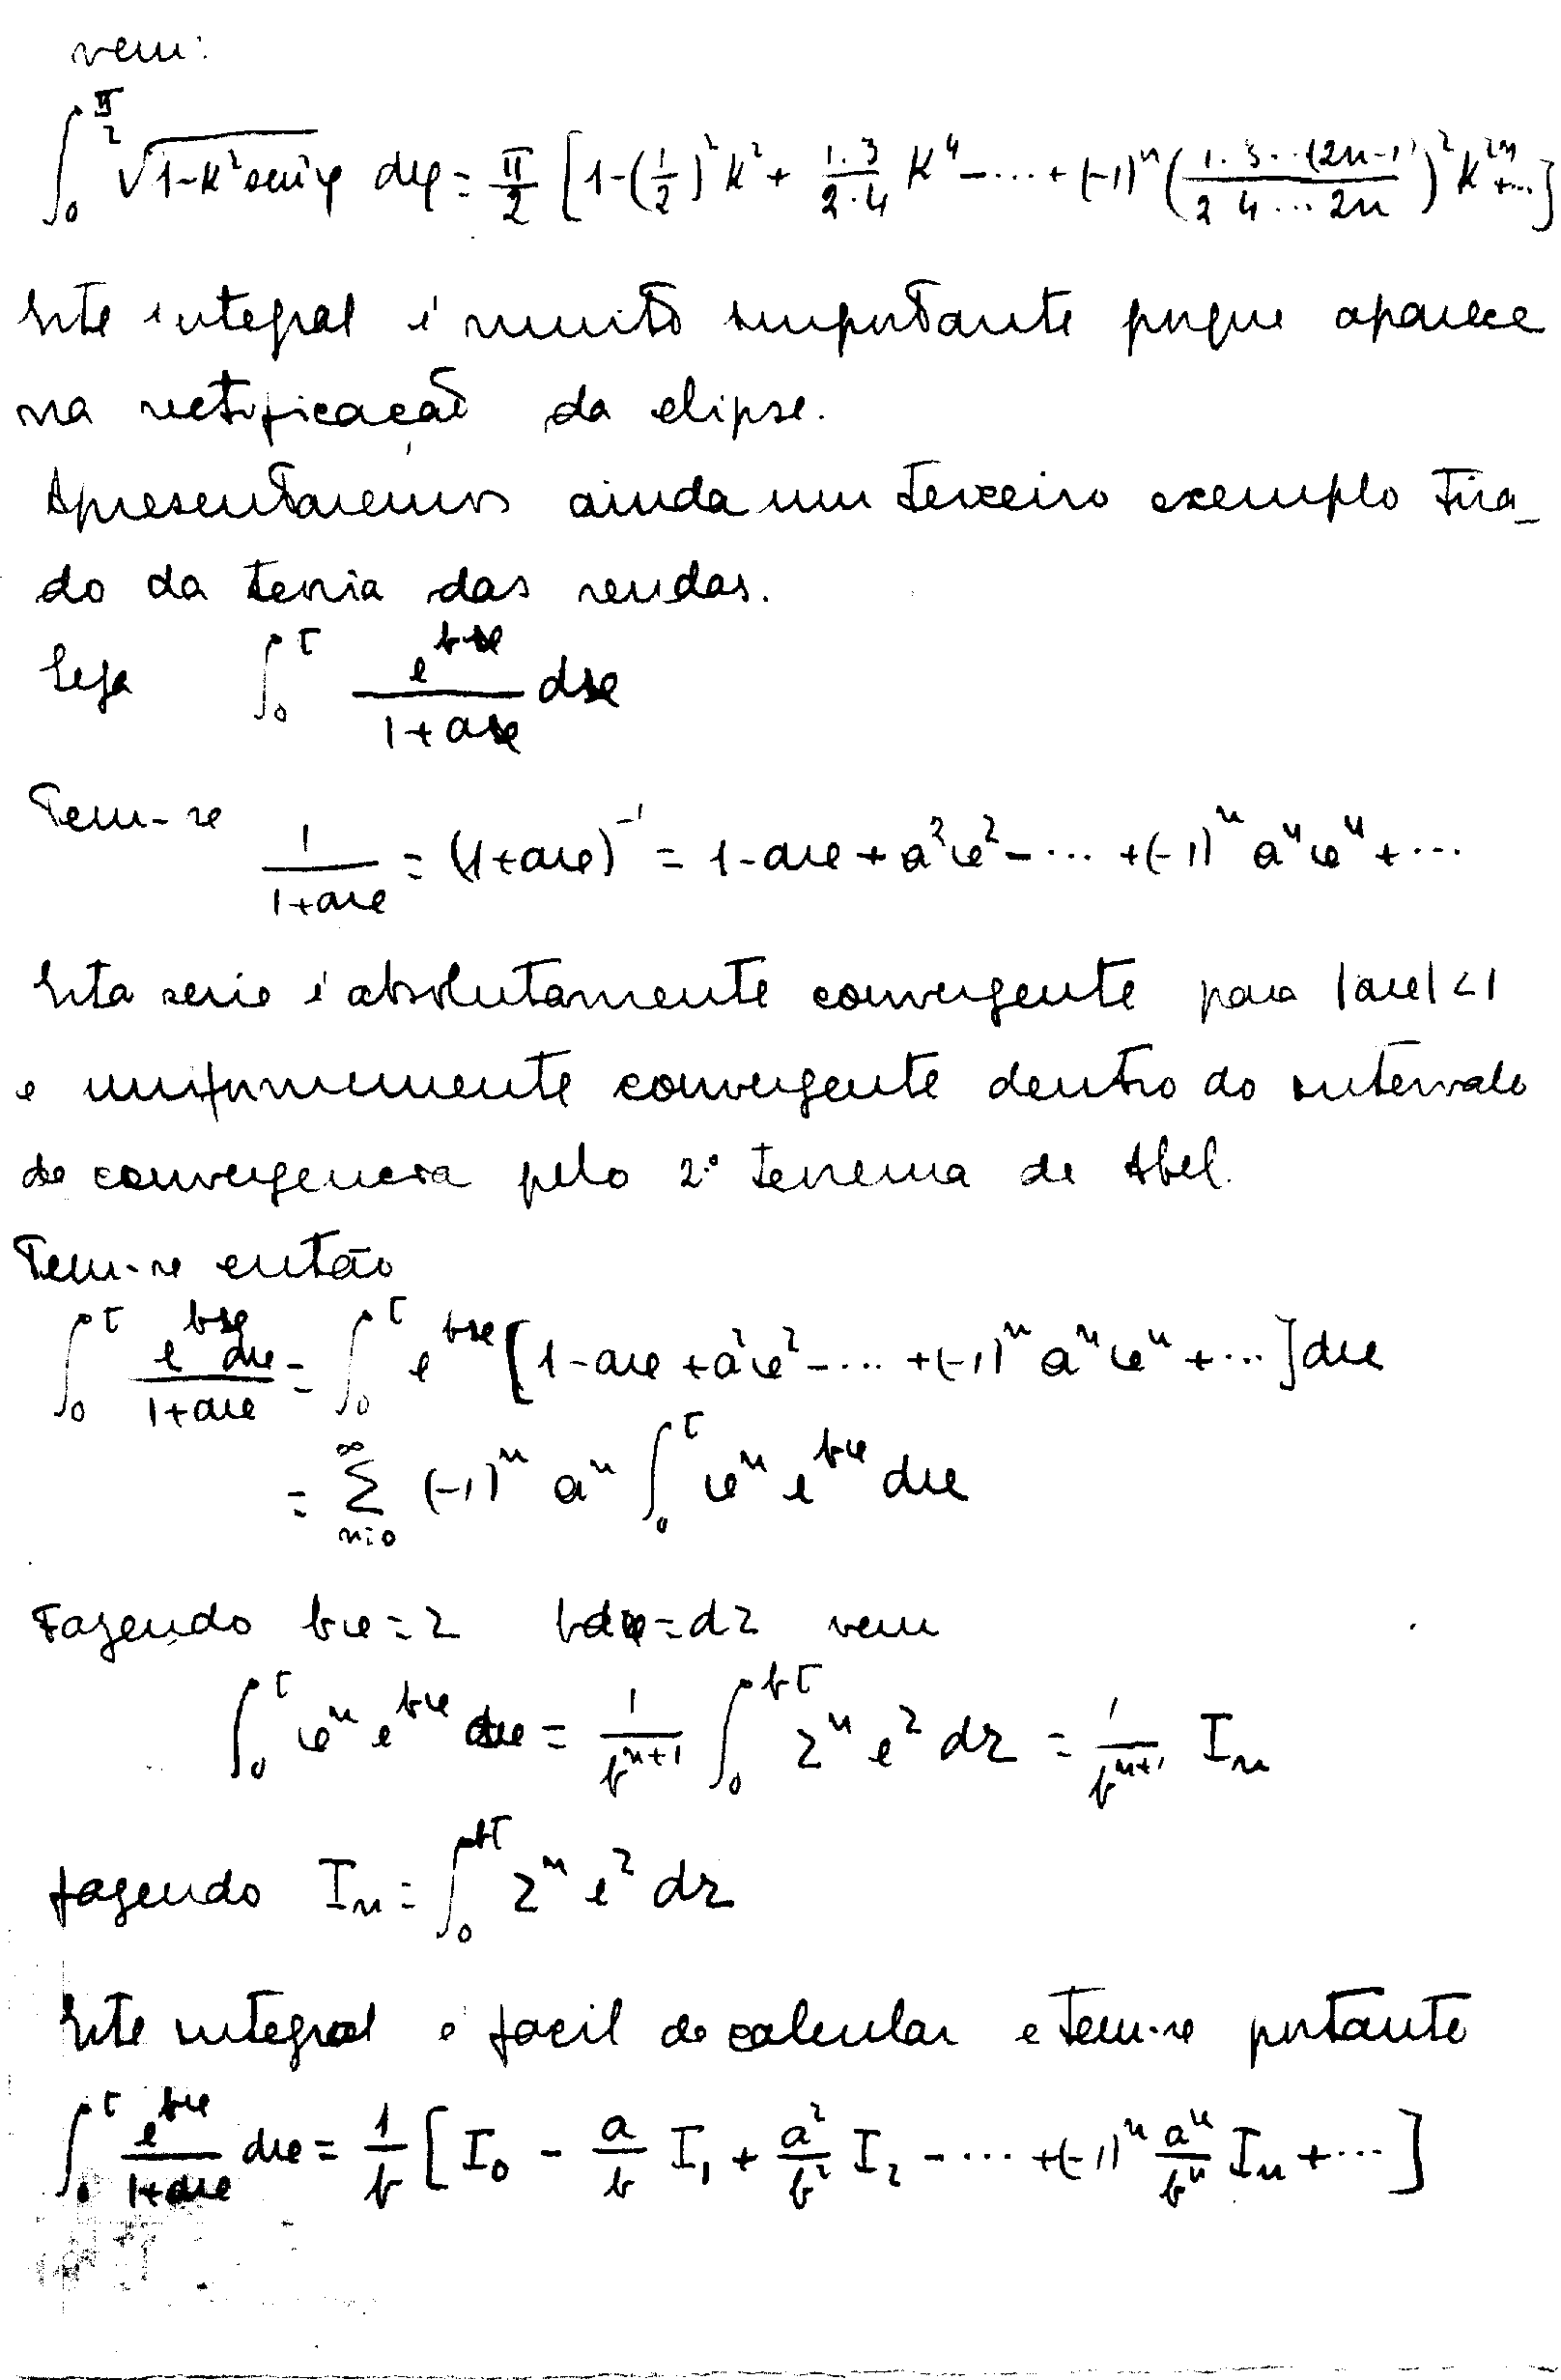 vem:
∫₀^{π/2} √(1-K² sen²φ) dφ = π/2 [1-(1/2)² K² + (1.3)/(2.4) K⁴ - ... + (-1)ⁿ ((1.3...(2n-1))/(2 4...2n))² K²ⁿ + ...]
Este integral é muito importante porque aparece
na rectificação da elipse.
Apresentaremos ainda um terceiro exemplo tira-
do da teoria das rendas.
Seja ∫₀^τ e^{bx}/(1+ax) dx
Tem-se 1/(1+ax) = (1+ax)⁻¹ = 1-ax+a²x²-... +(-1)ⁿ aⁿxⁿ+...
Esta serie é absolutamente convergente para |ax|<1
e uniformemente convergente dentro do intervalo
de convergencia pelo 2º teorema de Abel.
Tem-se então
∫₀^τ e^{bx}dx/(1+ax) = ∫₀^τ e^{bx} [1-ax+a²x²-... +(-1)ⁿ aⁿxⁿ+...]dx
= Σ_{n=0}^∞ (-1)ⁿ aⁿ ∫₀^τ xⁿ e^{bx} dx
Fazendo bx=z bdx=dz vem
∫₀^τ xⁿ e^{bx} dx = 1/b^{n+1} ∫₀^{bτ} zⁿ e^z dz = 1/b^{n+1} Iₙ
fazendo Iₙ = ∫₀^{bτ} zⁿ e^z dz
Este integral é facil de calcular e tem-se portanto
∫₀^τ e^{bx}/(1+ax) dx = 1/b [I₀ - a/b I₁ + a²/b² I₂ - ... +(-1)ⁿ aⁿ/bⁿ Iₙ + ...]